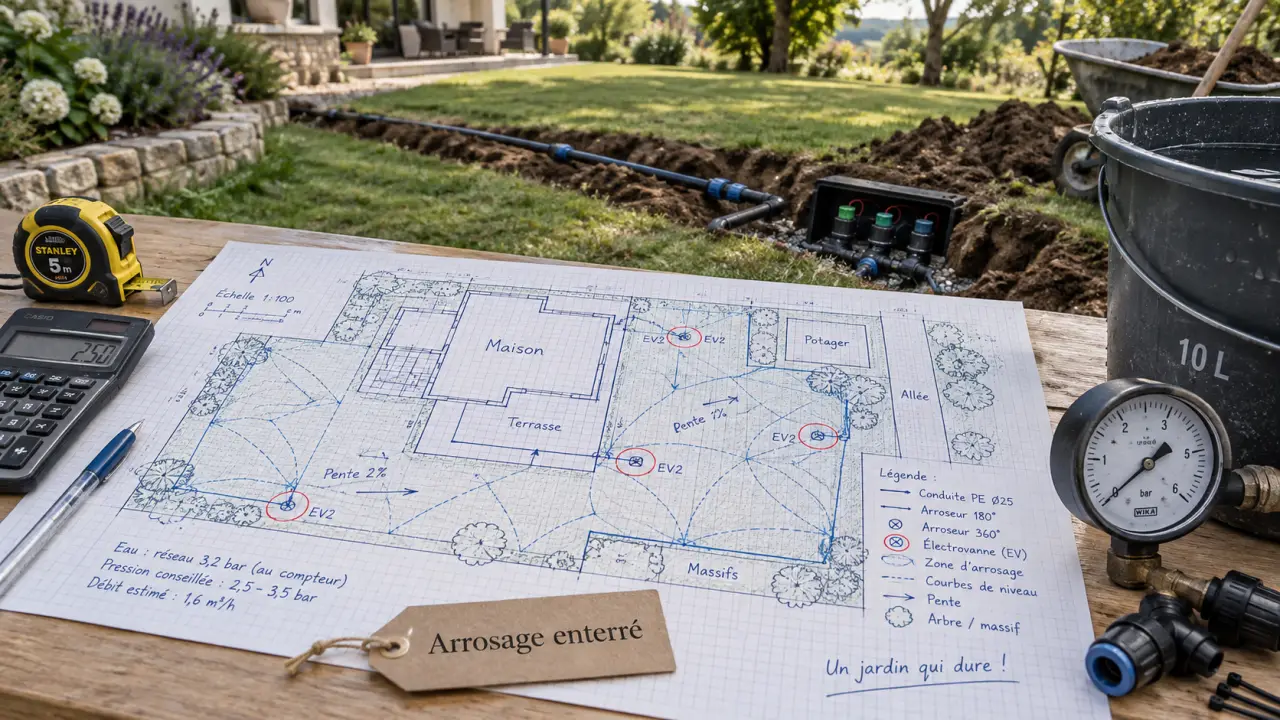 STANLEY
5 m
CASIO
250
N
Échelle 1:100
Maison
Terrasse
Potager
Allée
Massifs
EV2
EV2
EV2
EV2
EV2
Pente 1%
Pente 2%
Légende :
Conduite PE Ø25
Arroseur 180°
Arroseur 360°
Électrovanne (EV)
Zone d'arrosage
Courbes de niveau
Pente
Arbre / massif
Eau : réseau 3,2 bar (au compteur)
Pression conseillée : 2,5 – 3,5 bar
Débit estimé : 1,6 m³/h
Arrosage enterré
Un jardin qui dure !
10 L
0 1 2 3 4 5 6
bar
WIKA